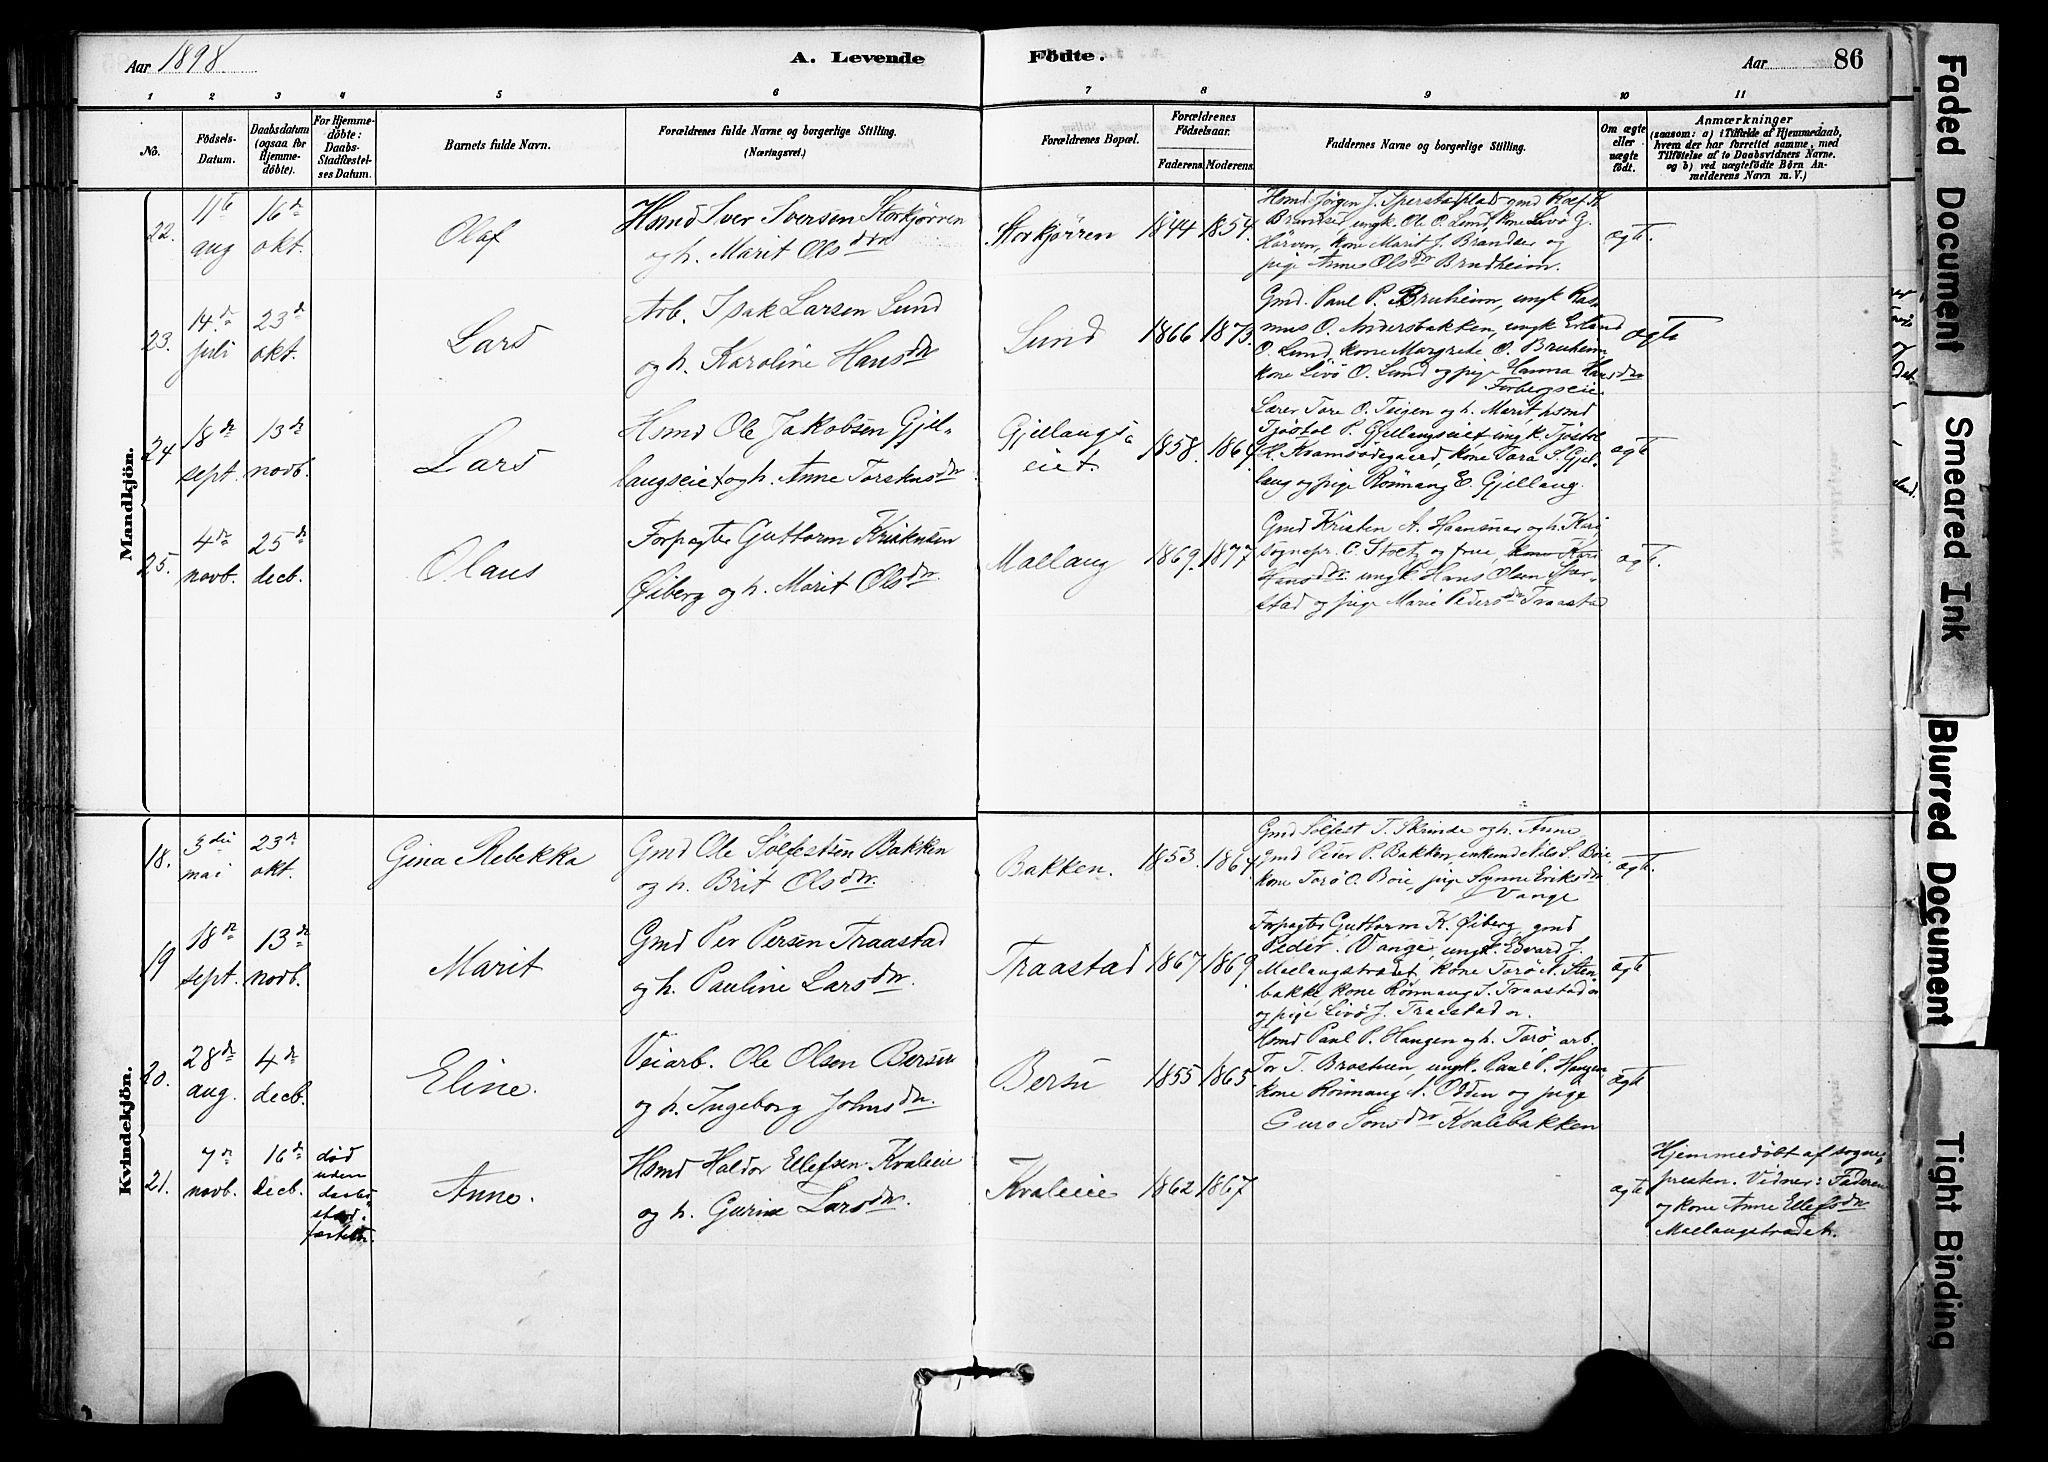 Aar 1898
A. Levende Födte.
Aar 86
1 2 3 4 5 6 7 8 9 10 11
No.
Födsels-Datum.
Daabsdatum (ogsaa for Hjemme-döbte).
For Hjemme-döbte: Daabs-Stadfæstel-ses Datum.
Barnets fulde Navn.
Forældrenes fulde Navne og borgerlige Stilling.
(Næringsvei.)
Forældrenes Bopæl.
Forældrenes Födselsaar.
Faderens. Moderens.
Faddernes Navne og borgerlige Stilling.
Om ægte eller uægte födt.
Anmærkninger
(saasom: a) i Tilfælde af Hjemmedaab,
hvem der har forrettet samme, med
Tilföielse af to Daabsvidners Navne.
og b) ved uægtefödte Börn An-
melderens Navn m. V.)
Mandkjön.
22.
11te aug
16de okt.
Olaf
Hsmd Iver Iversen Storkjørren
og h. Marit Olsdtr
Storkjørren
1844 1854.
Hsmd Jörgen J. Sperstadplads gmd Rolf K.
Brandsei, ungk. Ole O. Lund, kone Livö G.
Harven, kone Marit J. Brandsei og
pige Anne Olsdtr Brudheim.
ægt.
23.
14de juli
23de okt.
Lars
Arb. Isak Larsen Lund
og h. Karoline Hansdtr
Lund
1866 1873.
Gmd. Paul P. Bruheim, ungk Ras-
mus O. Andersbakken, ungk Erland
O. Lund, kone Margrete O. Bruheim
kone Livö O. Lund og pige Hanna Hansdtr
Forbergseie
ægte
24
18de sept.
13de novb.
Lars
Hsmd Ole Jakobsen Gjel-
langseiet og h. Anne Torstensdtr
Gjellangs-
eiet.
1858. 1864
Lærer Tore O. Teigen og h. Marit, hsmd
Tjöstol P. Gjellangseiet, ungk. Tjöstol
H. Kramsödegaard, kone Tora S. Gjel-
lang og pige Rönnaug E. Gjellang.
ægte
25.
4de novb.
25de decb.
Olaus
Forpagter Guttorm Kristensen
Öiberg og h. Marit Olsdtr.
Maelang
1869. 1877
Gmd Kristen A. Haansnar og h. Kari,
sognepr. C. Stoltz og frue, kone Kari
Hansdtr ungk Hans Olsen Spar-
stad og pige Marie Pedersdtr Traastad
ægt.
Kvindekjön.
18.
3die mai
23de okt.
Gina Rebekka
Gmd Ole Sölfestsen Bakken
og h. Brit Olsdtr.
Bakken.
1853. 1864.
Gmd Sölfest T. Skrinde og h. Anne,
Gmd Peter P. Bakken, enkemd Nils S. Böie
kone Torö O. Böie, pige Synne Eriksdtr
Vange
ægt.
19
18de sept.
13de novb.
Marit
Gmd Per Persen Traastad
og h. Pauline Larsdtr.
Traastad
1867 1869.
Forpagter Guttorm K. Öiberg, gmd
Peder. Vange, ungk. Edvard J.
Maelangströdet, kone Torö N. Sten-
bakke, kone Rönnaug J. Traastad
og pige Livö J. Traastad
ægte
20.
28de aug.
4de decb.
Eline.
Veiarb. Ole Olsen Bersu
og h. Ingeborg Johnsdtr.
Bersu
1855 1865
Hsmd Paul P. Haugen og h. Torö, arb.
Tor T. Brostuen, ungk. Paul P. Haugen,
kone Rönnaug N. Odden og pige
Guro Jonsdtr Kvalebakken
ægte
21.
7de novb.
16de decb.
död
uden
daabs-
stad-
fæstelse.
Anne.
Hsmd Haldor Ellefsen Kvaleeie
og h. Gurine Larsdtr.
Kvaleeie
1862 1867
ægte
Hjemmedöbt af sogne-
presten. Vidner: Faderen
og kone Anne Ellefsdtr
Maelangströdet.
Faded Document
Smeared Ink
Blurred Document
Tight Binding